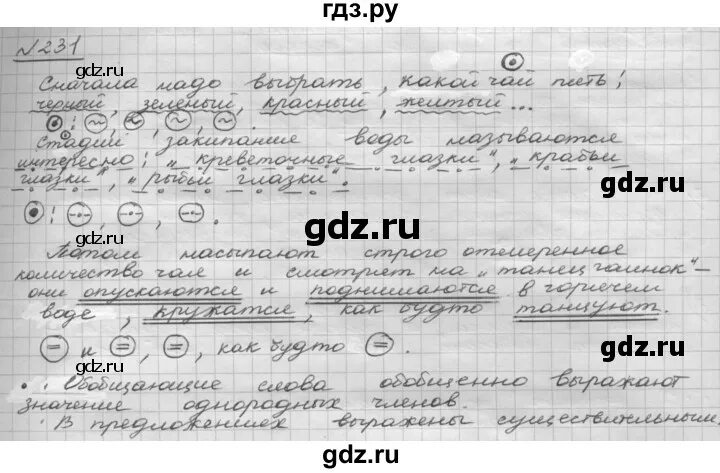 гдз.ру
№231
Сначала надо выбрать, какой чай пить:
черный, зеленый, красный, желтый...
Стадии закипания воды называются
интересно: „креветочные глазки", „крабьи
глазки", „рыбьи глазки".
gdz.ru
gdz.ru
Потом насыпают строго отмеренное
количество чая и смотрят на „танец чаинок" –
они опускаются и поднимаются в горячем
воде, кружатся, как будто танцуют.
gdz.ru
и , , как будто .
gdz.ru
Обобщающие слова обобщенно выражают
значение однородных членов.
В предложениях выражены существительным,
gdz.ru